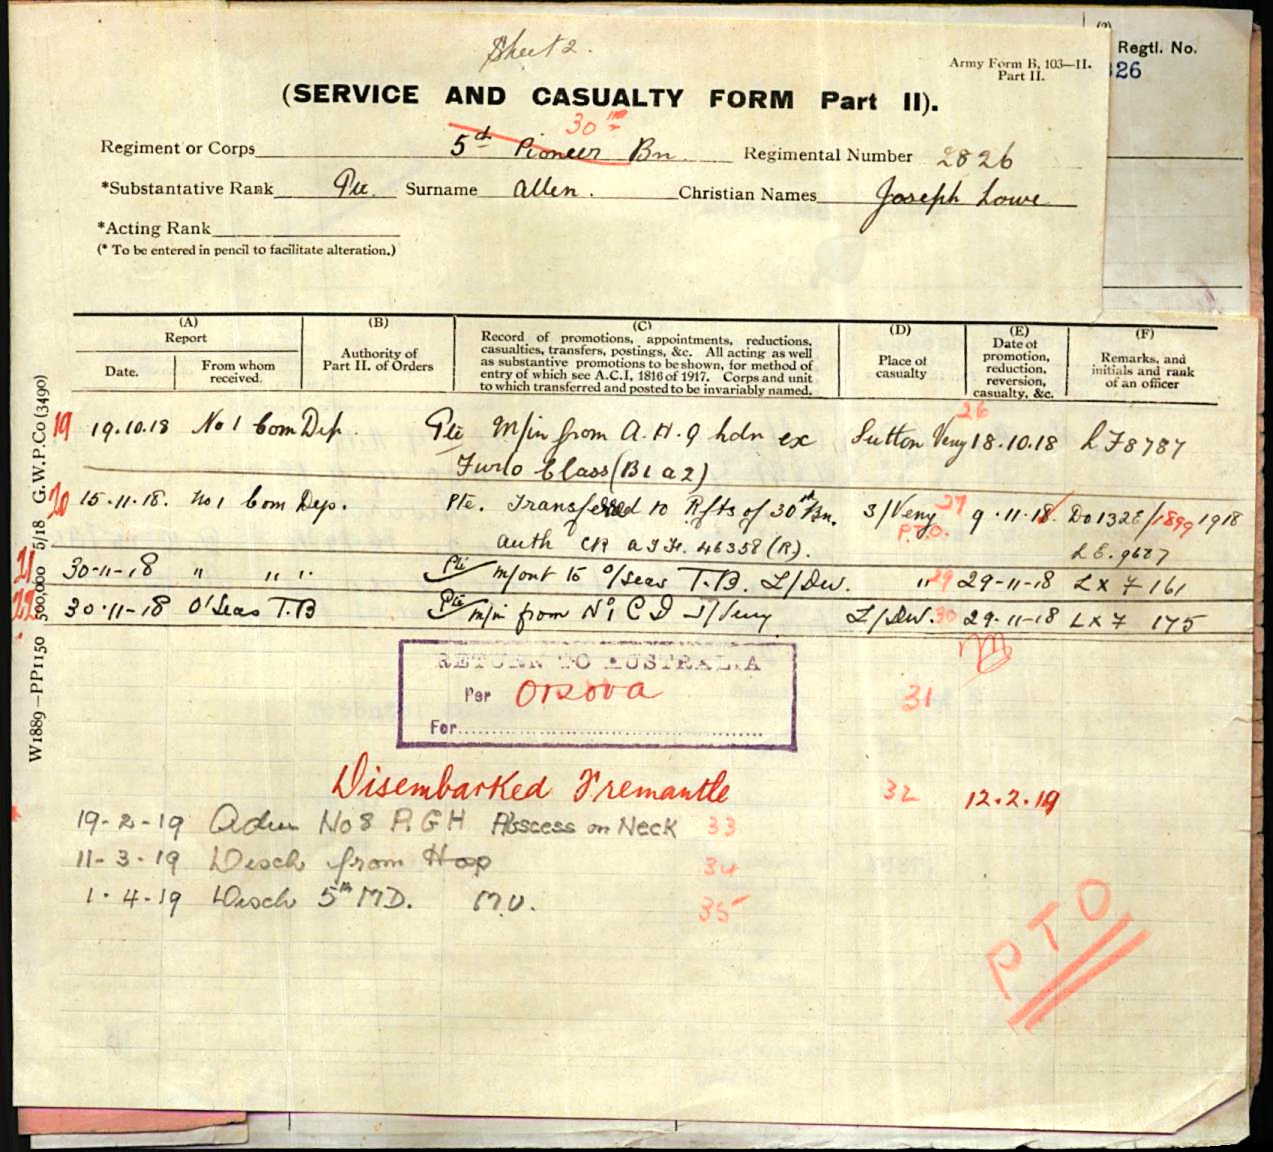 Sheet 2.
Regtl. No.
Army Form B. 103—II.
Part II.
26
(SERVICE AND CASUALTY FORM Part II).
30th
Regiment or Corps 5th Pioneer Bn. Regimental Number 2826
*Substantative Rank Pte. Surname Allen. Christian Names Joseph Lowe
*Acting Rank
(* To be entered in pencil to facilitate alteration.)
(A)
Report
Date.
From whom
received.
(B)
Authority of
Part II. of Orders
(C)
Record of promotions, appointments, reductions,
casualties, transfers, postings, &c. All acting as well
as substantive promotions to be shown, for method of
entry of which see A.C.I. 1816 of 1917. Corps and unit
to which transferred and posted to be invariably named.
(D)
Place of
casualty
(E)
Date of
promotion,
reduction,
reversion,
casualty, &c.
(F)
Remarks, and
initials and rank
of an officer
26
19 19.10.18 No 1 Com Dep. Pte M/in from A.H.Q ldn ex Sutton Veny 18.10.18 LF8787
Furlo Class (B1a2)
20 15.11.18. No 1 Com Dep. Pte. Transferred to Rfts of 30th Bn. S/Veny 27 9.11.18 Do 132E/1899 1918
P.T.O.
auth CR AIF. 46358 (R). LE.9627
21 30-11-18 " " " Pte m/out to o/seas T.B. L/Dev. " 29 29-11-18 LX7 161
22 30-11-18 O'Seas T.B Pte m/in from No 1 C D S/Veny L/Dev. 30 29-11-18 LX7 175
RETURN TO AUSTRALIA
Per Orova
For
31
Disembarked Fremantle 32 12.2.19
19-2-19 Adm No 8 A.G.H Abscess on Neck 33
11-3-19 Disch from Hosp 34
1.4-19 Disch 5th MD. M.U. 35
PTO
W1889—PP1150 500,000 5/18 G.W.P.Co (3490)